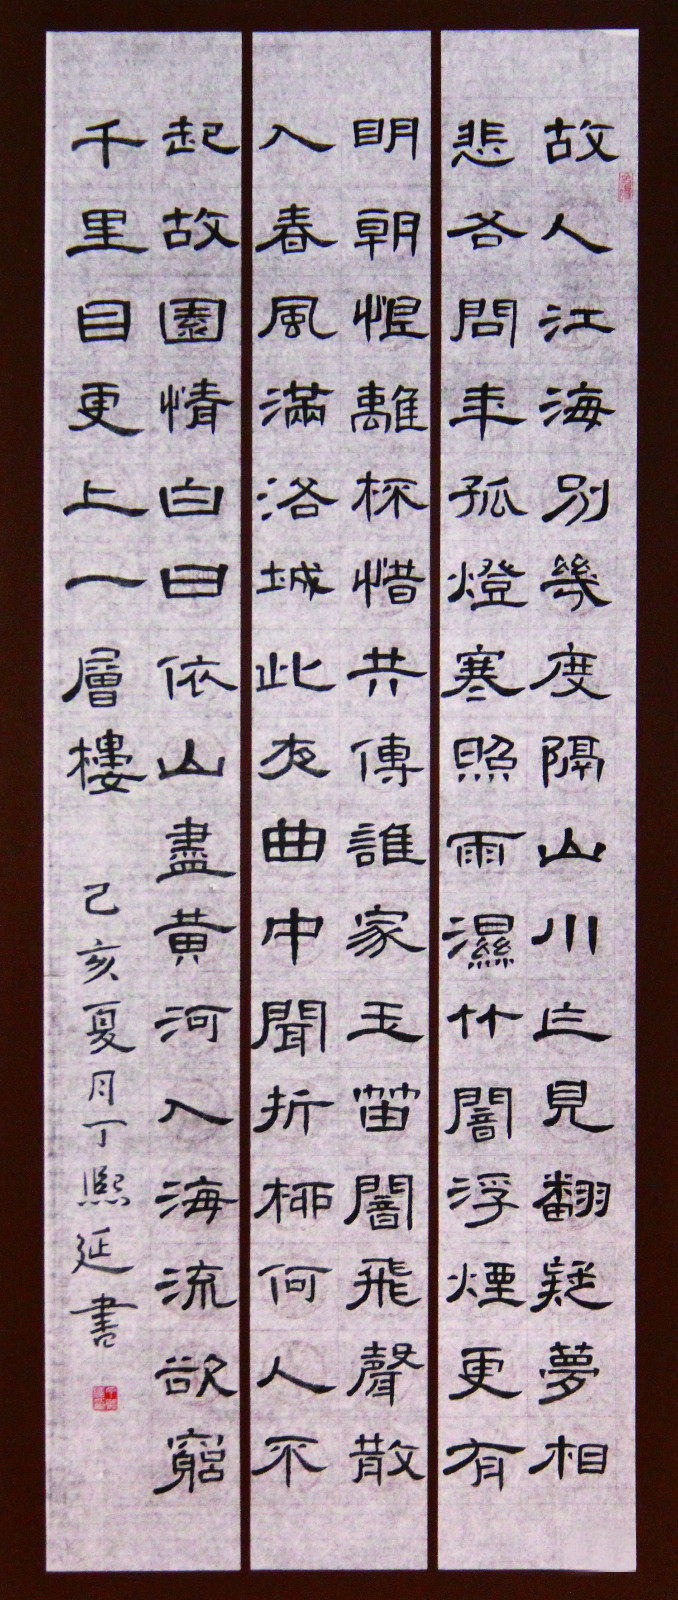 故人江海別幾度隔山川乍見翻疑夢相
悲各問年孤燈寒照雨濕竹闇浮煙更有
明朝恨離杯惜共傳誰家玉笛闇飛聲散
入春風滿洛城此夜曲中聞折柳何人不
起故園情白日依山盡黃河入海流欲窮
千里目更上一層樓
己亥夏月丁熙延書